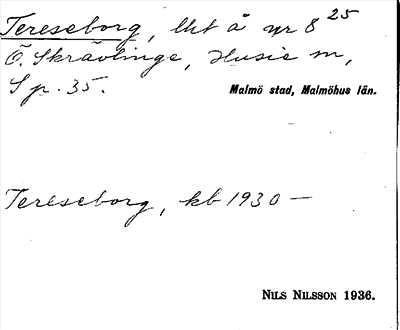 Tereseborg, lht å nr 8 25
Ö. Skrävlinge, Husie m,
S p. 35.
Malmö stad, Malmöhus län.
Tereseborg, kb 1930 —
NILS NILSSON 1936.